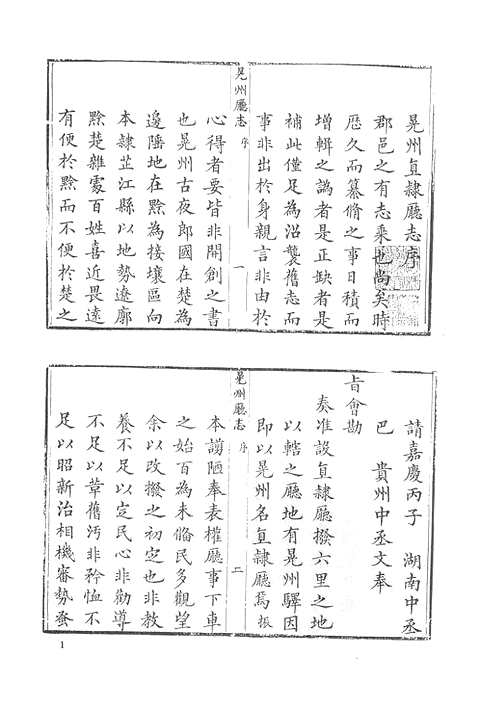 晃州直隸廳志序
郡邑之有志乘也尚矣時
歴久而纂脩之事日積而
增輯之譌者是正缺者是
補此僅足為沿襲舊志而
事非出於身親言非由於
晃州廳志
序
一
心得者要皆非開創之書
也晃州古夜郎國在楚為
邊隅地在黔為接壤區向
本隷芷江縣以地勢遼廓
黔楚雜處百姓喜近畏遠
有便於黔而不便於楚之
請嘉慶丙子 湖南中丞
巴 貴州中丞文奉
旨會勘
奏准設直隸廳撥六里之地
以轄之廳地有晃州驛因
即以晃州名直隸廳焉振
晃州廳志
序
二
本謭陋奉表權廳事下車
之始百為未脩民多觀望
余以改撥之初定也非教
養不足以定民心非勸導
不足以草舊汚非矜恤不
足以昭新治相機審勢蚤
1